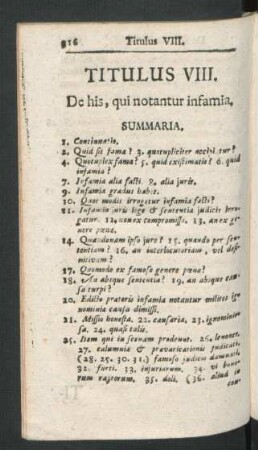 816 Titulus VIII.
TITULUS VIII.
De his, qui notantur infamia.
SUMMARIA.
1. Continuatio.
2. Quid sit fama? 3. quotupliciter
4. Quotuplex fama? 5. quid existimatio? 6. quid
infamia?
7. Infamia alia facti. 8. alia juris.
9. Infamia gradus habet.
10. Quot modis irrogetur infamia facti?
11. Infamia juris lege & sententia judicis irro-
gatur. 12. ex compromissi. 13. an ex ge-
nere pœnæ.
14. Quædam ipso jure? 15. quando per sen-
tentiam? 16. an interlocutoriam, vel de-
finitivam?
17. Quomodo ex famoso genere pœna?
18. absque sententia? 19. an absque cau-
sa turpi?
20. Edicto prætoris infamia notantur milites ig-
nominia causa dimissi.
21. Missio honesta. 22. causaria. 23. ignominio-
sa. 24. quasi talis.
25. Item qui in scenam prodeunt. 26. lenones.
27. calumniæ & prævaricationis judicati.
(28. 29. 30. 31.) famoso judicio damnati.
32. furti. 33. injuriarum. 34. vi bono-
rum raptorum. 35. doli, (36. aliud in